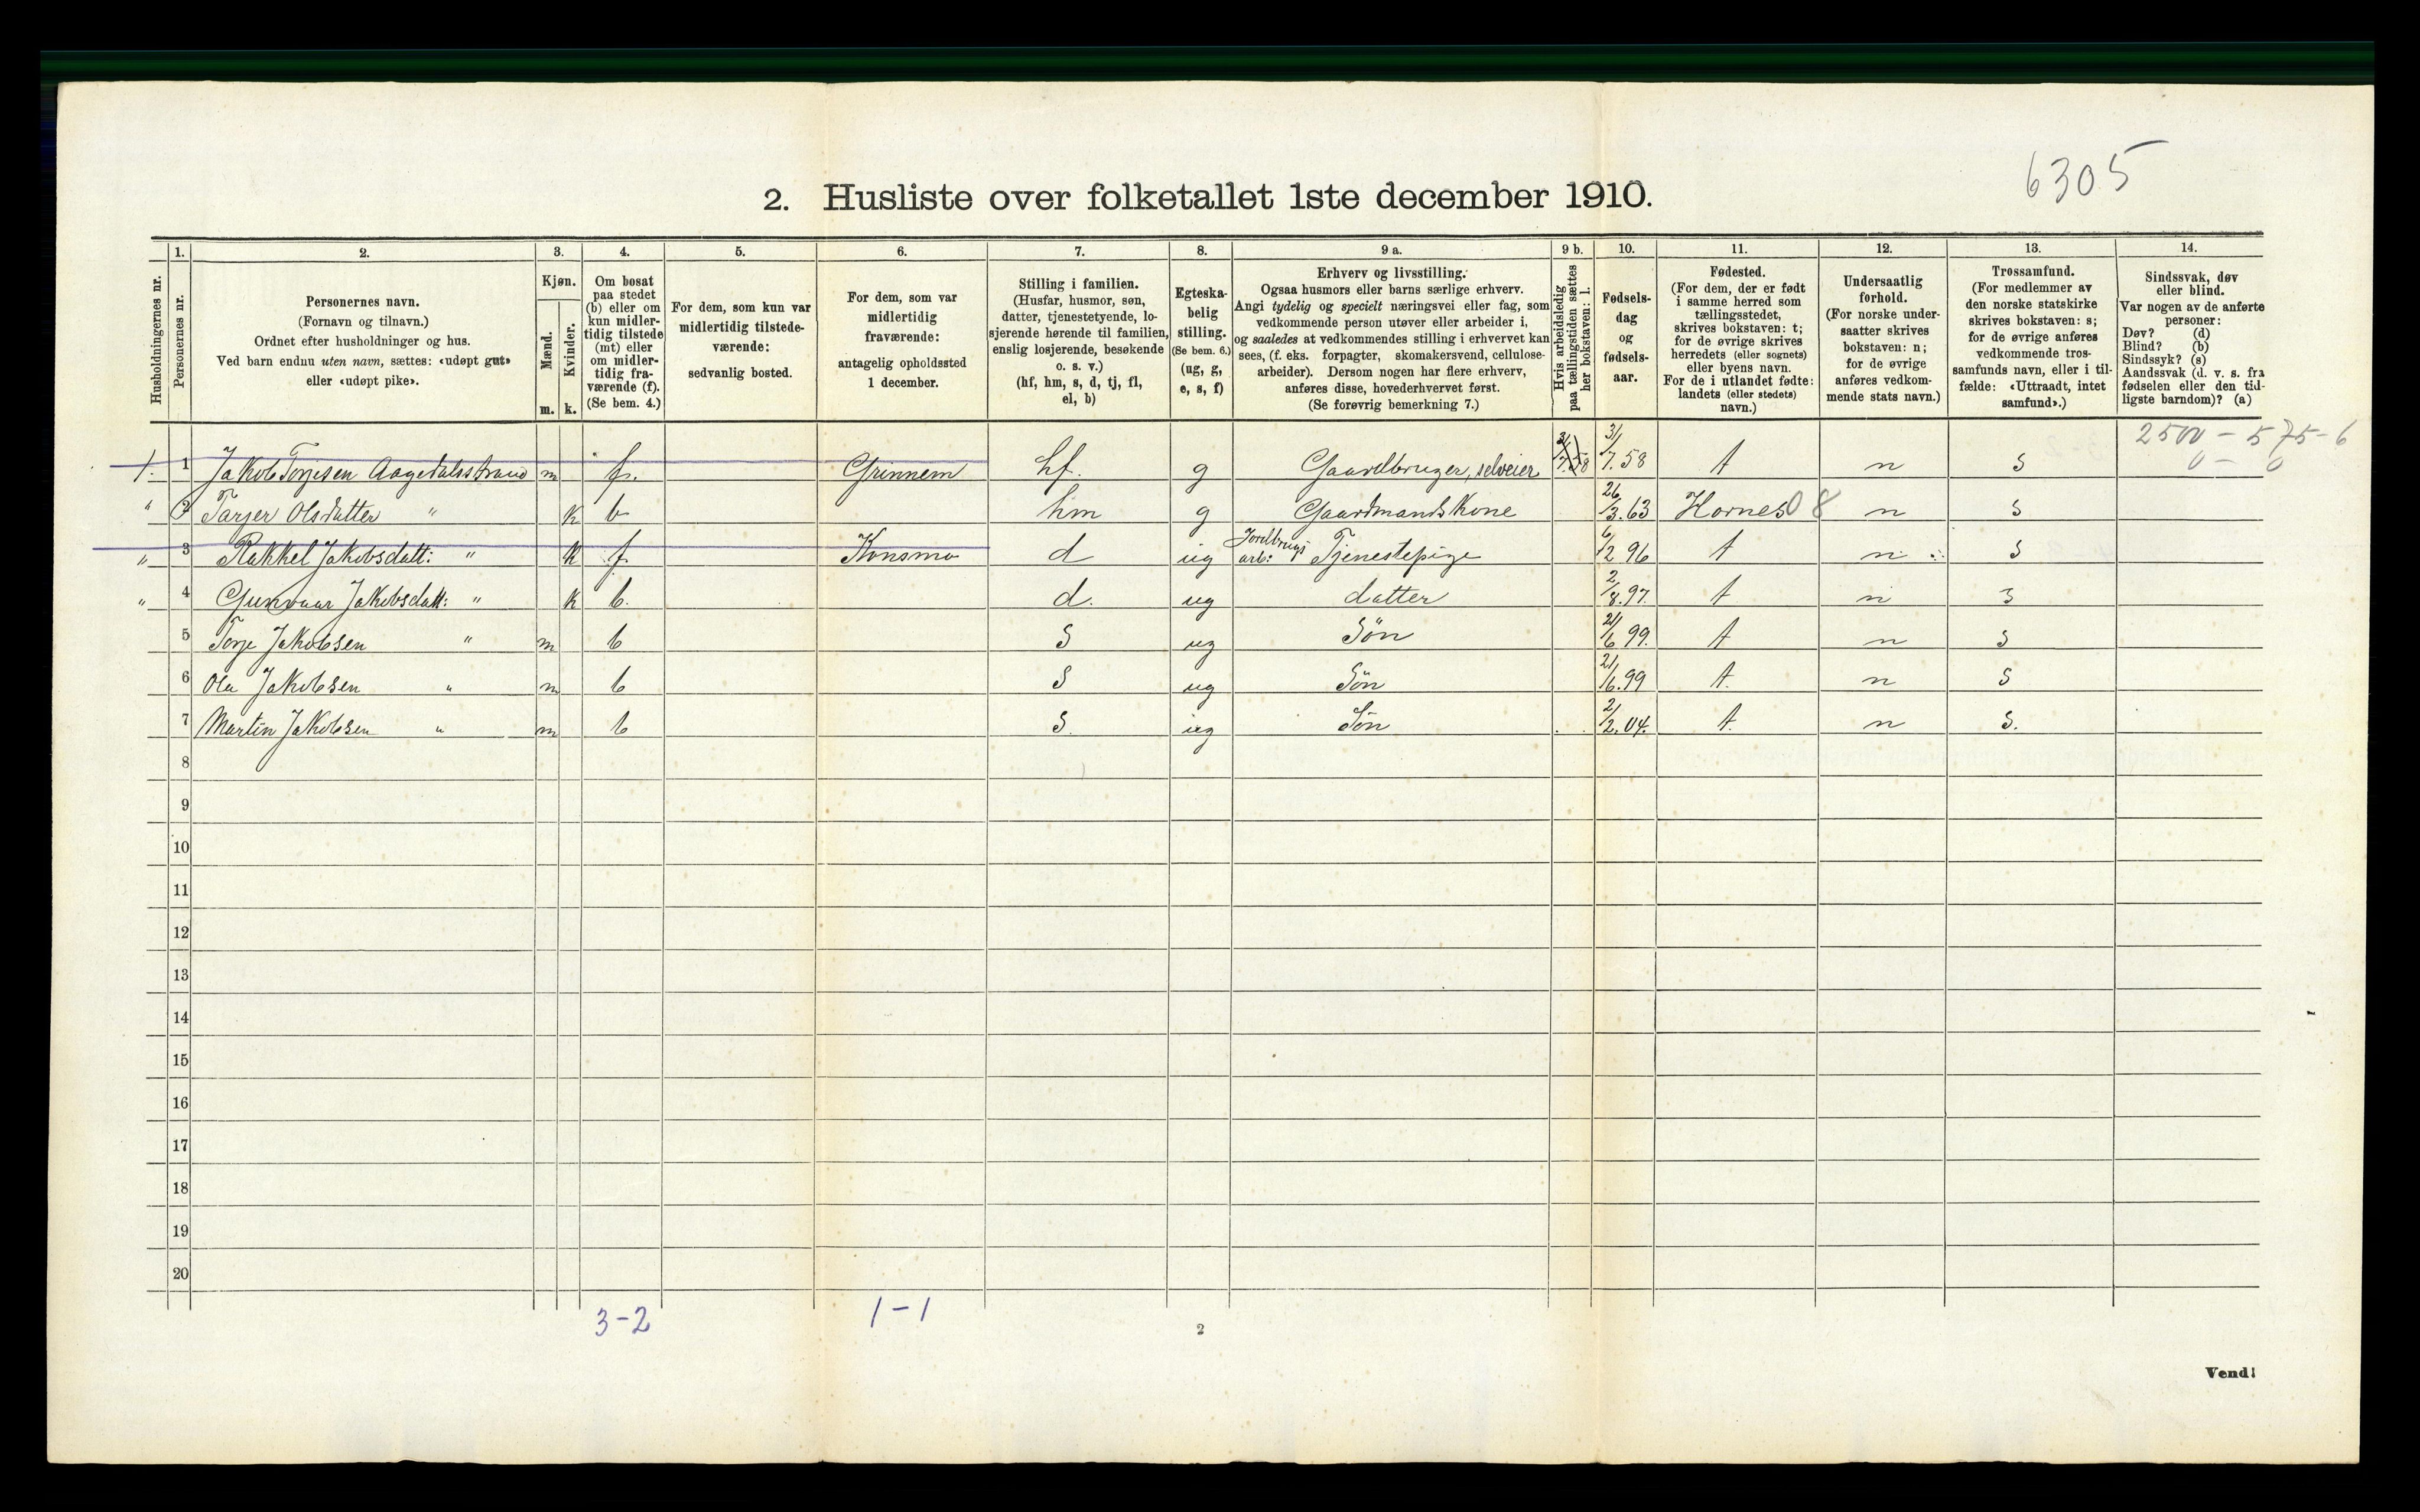 6305
2. Husliste over folketallet 1ste december 1910.
1. 2. 3. 4. 5. 6. 7. 8. 9 a. 9 b. 10. 11. 12. 13. 14.
Husholdningernes nr.
Personernes nr.
Personernes navn.
(Fornavn og tilnavn.)
Ordnet efter husholdninger og hus.
Ved barn endnu uten navn, sættes: «udøpt gut»
eller «udøpt pike».
Kjøn.
Mænd.
Kvinder.
m. k.
Om bosat
paa stedet
(b) eller om
kun midler-
tidig tilstede
(mt) eller
om midler-
tidig fra-
værende (f).
(Se bem. 4.)
For dem, som kun var
midlertidig tilstede-
værende:
sedvanlig bosted.
For dem, som var
midlertidig
fraværende:
antagelig opholdssted
1 december.
Stilling i familien.
(Husfar, husmor, søn,
datter, tjenestetyende, lo-
sjerende hørende til familien,
enslig losjerende, besøkende
o. s. v.)
(hf, hm, s, d, tj, fl,
el, b)
Egteska-
belig
stilling.
(Se bem. 6.)
(ug, g,
e, s, f)
Erhverv og livsstilling.
Ogsaa husmors eller barns særlige erhverv.
Angi tydelig og specielt næringsvei eller fag, som
vedkommende person utøver eller arbeider i,
og saaledes at vedkommendes stilling i erhvervet kan
sees, (f. eks. forpagter, skomakersvend, cellulose-
arbeider). Dersom nogen har flere erhverv,
anføres disse, hovederhvervet først.
(Se forøvrig bemerkning 7.)
Hvis arbeidsledig
paa tællingstiden sættes
her bokstaven: l.
Fødsels-
dag
og
fødsels-
aar.
Fødested.
(For dem, der er født
i samme herred som
tællingsstedet,
skrives bokstaven: t;
for de øvrige skrives
herredets (eller sognets)
eller byens navn.
For de i utlandet fødte:
landets (eller stedets)
navn.)
Undersaatlig
forhold.
(For norske under-
saatter skrives
bokstaven: n;
for de øvrige
anføres vedkom-
mende stats navn.)
Trossamfund.
(For medlemmer av
den norske statskirke
skrives bokstaven: s;
for de øvrige anføres
vedkommende tros-
samfunds navn, eller i til-
fælde: «Uttraadt, intet
samfund».)
Sindssvak, døv
eller blind.
Var nogen av de anførte
personer:
Døv? (d)
Blind? (b)
Sindssyk? (s)
Aandssvak (d. v. s. fra
fødselen eller den tid-
ligste barndom)? (a)
2500 - 575 - 6
0 - 0
1. 1 Jakob Torjesen Aagedalsstrand m f. Grinnem hf. g Gaardbruger, selveier 31/7.58 31/7.58 t n s
" 2 Tarjer Olsdatter " k b hm g Gaardmandskone 26/3.63 Hornes 08 n s
" 3 Rakkel Jakobsdatt: " k f. Konsmo d ug Jordbrugsarb: Tjenestepige 6/2 96 t n s
" 4 Gunvaar Jakobsdatt: " k b. d. ug datter 2/8.97. t n s
5 Torje Jakobsen " m b s ug Søn 21/6 99. t n s
6 Ola Jakobsen " m b s ug Søn 21/6.99 t. n s
7 Martin Jakobsen " m b s. ug Søn 2/2.04. t. n s.
8
9
10
11
12
13
14
15
16
17
18
19
20
3-2 1-1
2
Vend!